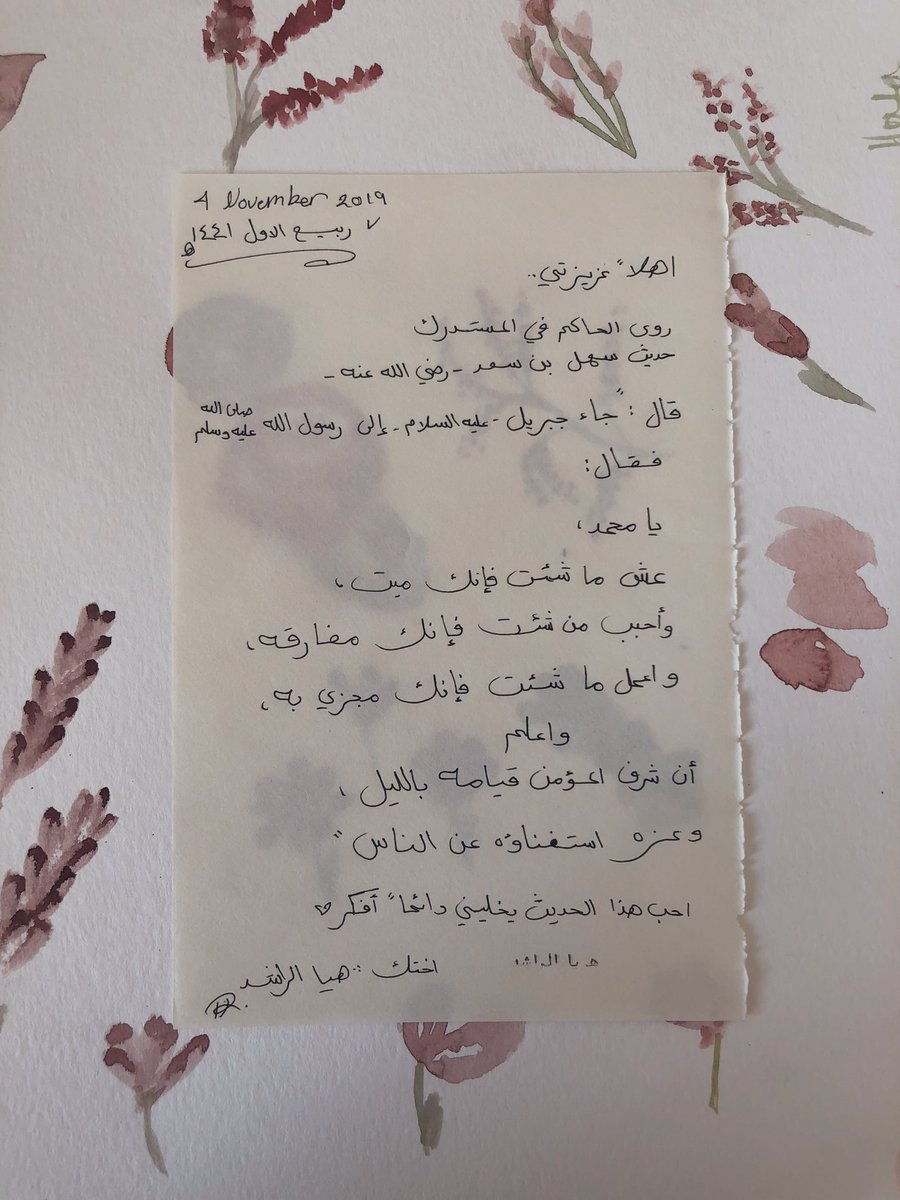 4 November 2019
٧ ربيع الاول ١٤٤١هـ
اهلاً عزيزتي..
روى الحاكم في المستدرك
حديث سهل بن سعد - رضي الله عنه -
قال: "جاء جبريل - عليه السلام - إلى رسول الله صلى الله عليه وسلم
فقال:
يا محمد،
عش ما شئت فإنك ميت،
وأحبب من شئت فإنك مفارقه،
واعمل ما شئت فإنك مجزي به،
واعلم
أن شرف المؤمن قيامه بالليل،
وعزه استغناؤه عن الناس"
احب هذا الحديث يخليني دائماً أفكر
هيا الراشد
اختك: هيا الراشد